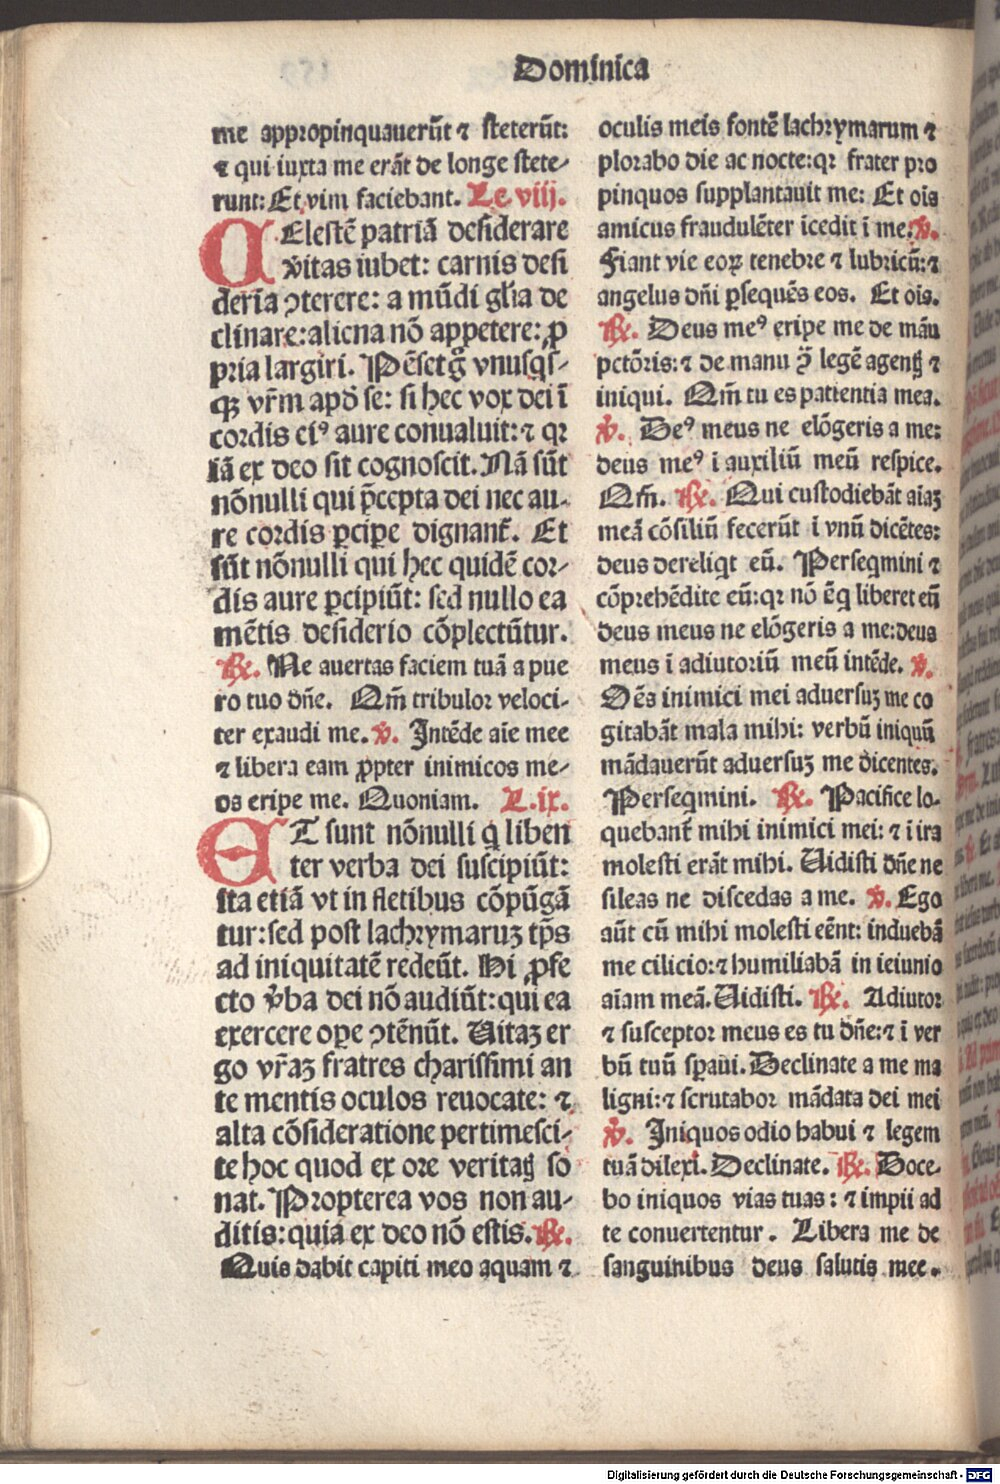 Dominica
me appropinquauerūt ⁊ steterūt:
⁊ qui iuxta me erāt de longe stete-
runt: Et vim faciebant. Le. viij.
CElestē patriā desiderare
v̄itas iubet: carnis desi
deria ꝯterere: a mūdi gl̄ia de
clinare: aliena nō appetere: ꝓ
pria largiri. Pēset g̊ vnusqs-
qꝫ vr̄m apd̄ se: si hec vox dei ī
cordis eiꝰ aure conualuit: ⁊ qr
iā ex deo sit cognoscit. Nā sūt
nōnulli qui p̄cepta dei nec au-
re cordis ꝑcipe dignant̄. Et
sūt nōnulli qui hec quidē cor-
dis aure ꝑcipiūt: sed nullo ea
mētis desiderio cōplectūtur.
℟. Ne auertas faciem tuā a pue
ro tuo dn̄e. Qm̄ tribulor veloci-
ter exaudi me. ℣. Intēde aīe mee
⁊ libera eam ꝓpter inimicos me-
os eripe me. Quoniam. L. ix.
ET sunt nōnulli q̄ liben
ter verba dei suscipiūt:
ita etiā vt in fletibus cōpūgā
tur: sed post lachrymaruꝫ tp̄s
ad iniquitatē redeūt. Hi ꝓfe
cto v̄ba dei nō audiūt: qui ea
exercere ope ꝯtēnūt. Vitaꝫ er
go vr̄aꝫ fratres charissimi an
te mentis oculos reuocate: ⁊
alta cōsideratione pertimesci-
te hoc quod ex ore veritatꝭ so
nat. Propterea vos non au-
ditis: quia ex deo nō estis. ℟.
Quis dabit capiti meo aquam ⁊
oculis meis fontē lachrymarum ⁊
plorabo die ac nocte: qr frater pro
pinquos supplantauit me: Et ois
amicus fraudulēter īcedit ī me. ℣.
Fiant vie eoꝝ tenebre ⁊ lubricū: ⁊
angelus dn̄i ꝑsequēs eos. Et ois.
℟. Deus meꝰ eripe me de māu
pctōris: ⁊ de manu ꝯ̄ legē agentꝭ ⁊
iniqui. Qm̄ tu es patientia mea.
℣. Deꝰ meus ne elōgeris a me:
deus meꝰ ī auxiliū meū respice.
Qm̄. ℟. Qui custodiebāt aīaꝫ
meā cōsiliū fecerūt ī vnū dicētes:
deus dereliqt eū. Perseqmini ⁊
cōprehēdite eū: qr nō ē q̄ liberet eū
deus meus ne elōgeris a me: deus
meus ī adiutoriū meū intēde. ℣.
Oēs inimici mei aduersuꝫ me co
gitabāt mala mihi: verbū iniquū
mādauerūt aduersuꝫ me dicentes.
Perseqmini. ℟. Pacifice lo-
quebant̄ mihi inimici mei: ⁊ ī ira
molesti erāt mihi. Vidisti dn̄e ne
sileas ne discedas a me. ℣. Ego
aūt cū mihi molesti eēnt: induebā
me cilicio: ⁊ humiliabā in ieiunio
aīam meā. Vidisti. ℟. Adiutor
⁊ susceptor meus es tu dn̄e: ⁊ ī ver
bū tuū sꝑaui. Declinate a me ma
ligni: ⁊ scrutabor mādata dei mei
℣. Iniquos odio habui ⁊ legem
tuā dilexi. Declinate. ℟. Doce-
bo iniquos vias tuas: ⁊ impii ad
te conuertentur. Libera me de
sanguinibus deus salutis mee.
Digitalisierung gefördert durch die Deutsche Forschungsgemeinschaft - DFG